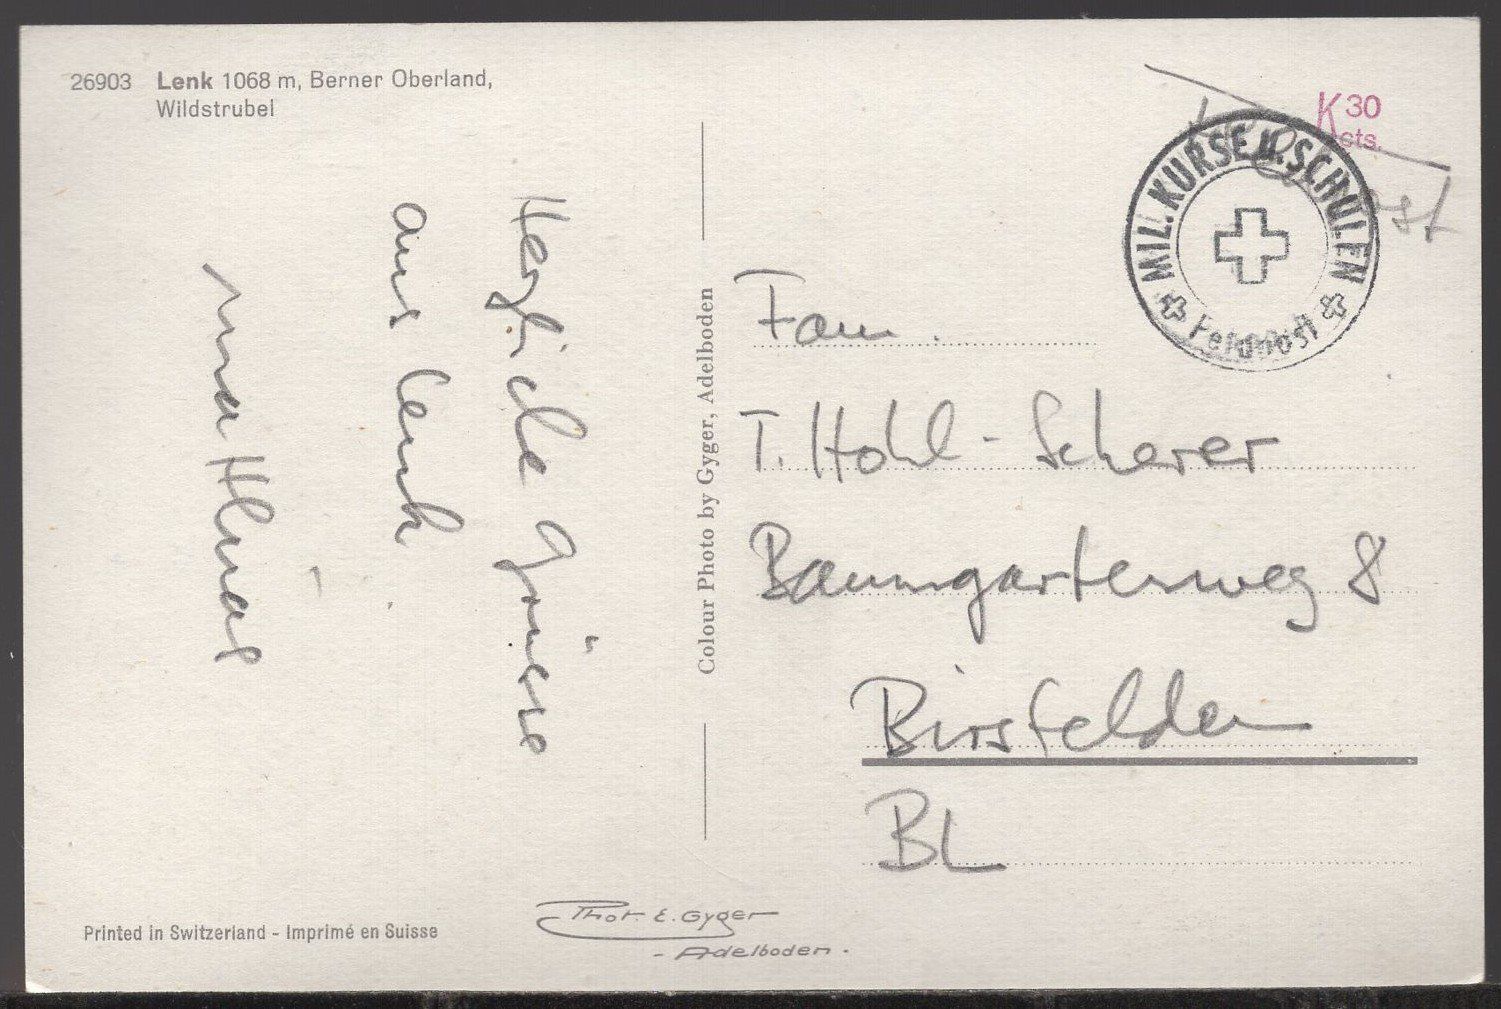 26903 Lenk 1068 m, Berner Oberland,
Wildstrubel
Herzliche Grüsse
aus Lenk
Colour Photo by Gyger, Adelboden
K 30
cts.
MIL. KURSE U. SCHULEN
Feldpost
Fam.
T. Hohl-Scherer
Baumgartenweg 8
Birsfelden
BL
Printed in Switzerland - Imprimé en Suisse
Phot. E. Gyger
- Adelboden -